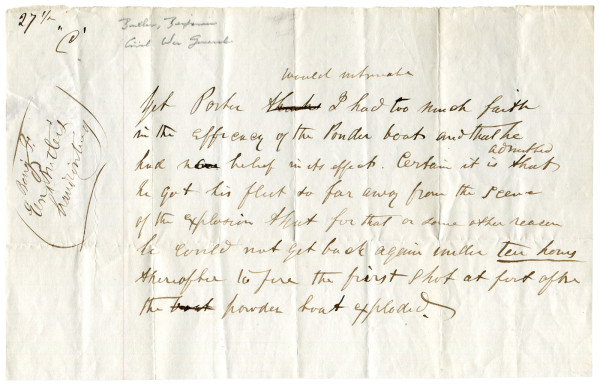 27 1/2
"C"
Butler, Benjamin
Civil War General
Benj. F.
Genl Butler's
handwriting
would intimate
Yet Porter thinks I had too much faith
in the efficacy of the Powder boat and that he
admitted
had no belief in its effect. Certain it is that
he got his fleet so far away from the scene
of the explosion that for that or some other reason
he could not get back again under ten hours
thereafter to fire the first shot at fort after
the boat powder boat exploded.